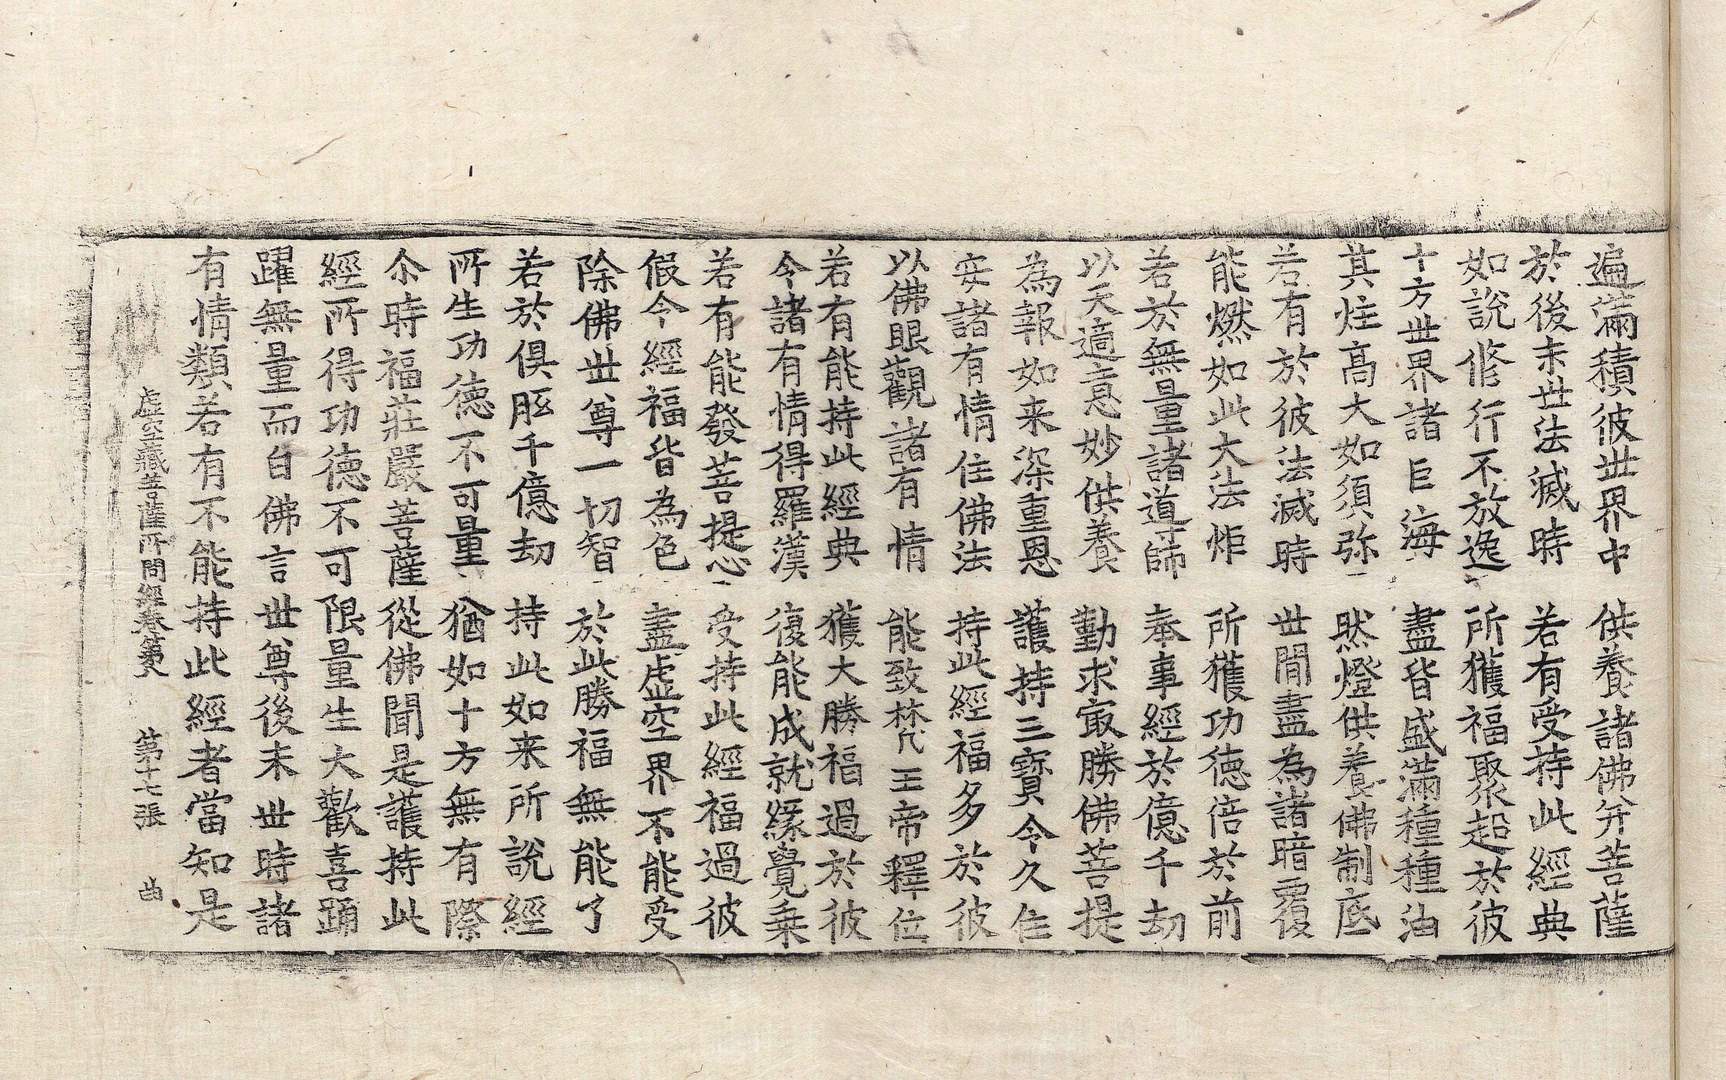 遍滿積彼世界中　供養諸佛并菩薩
於後末世法滅時　若有受持此經典
如說修行不放逸　所獲福聚超於彼
十方世界諸巨海　盡皆盛滿種種油
其炷高大如須弥　然燈供養佛制底
若有於彼法滅時　世間盡為諸暗覆
能燃如此大法炬　所獲功德倍於前
若於無量諸導師　奉事經於億千劫
以天適意妙供養　勤求㝡勝佛菩提
為報如来深重恩　護持三寶令久住
安諸有情住佛法　持此經福多於彼
以佛眼觀諸有情　能致梵王帝釋位
若有能持此經典　獲大勝福過於彼
令諸有情得羅漢　復能成就緣覺乗
若有能發菩提心　受持此經福過彼
假令經福皆為色　盡虛空界不能受
除佛世尊一切智　於此勝福無能了
若於俱胝千億劫　持此如来所說經
所生功德不可量　猶如十方無有際
尒時福莊嚴菩薩從佛聞是護持此
經所得功德不可限量生大歡喜踊
躍無量而白佛言世尊後末世時諸
有情類若有不能持此經者當知是
虛空藏菩薩所問經卷第　第十七張